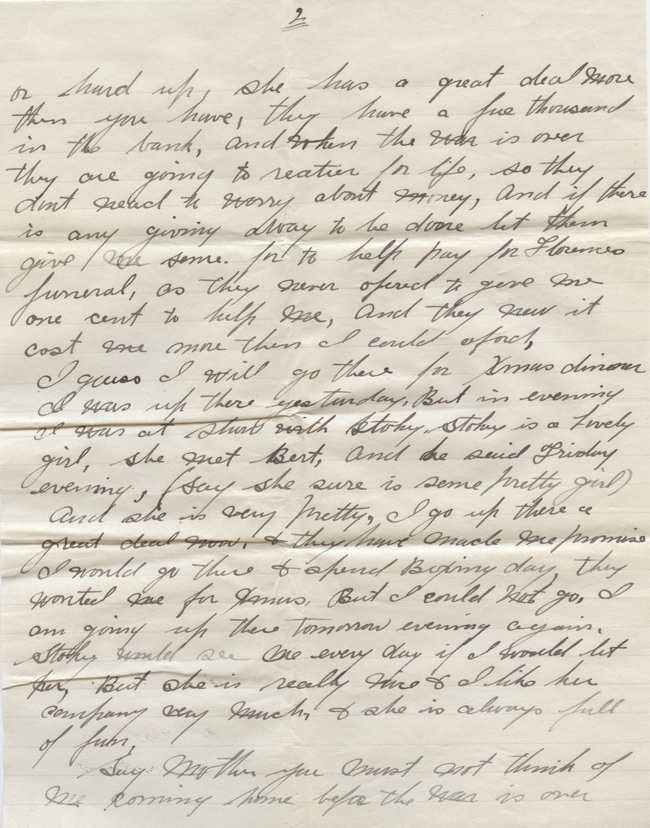 2
or hard up, she has a great deal more
then you have, they have a fue thousand
in the bank, and when the war is over
they are going to reatier for life, so they
dont nead to worry about money, And if there
is any giving away to be done let them
give me some. for to help pay for Florences
funeral, as they never ofered to give me
one cent to help me, And they new it
cost me more then I could aford,
I guess I will go there for Xmas dinner
I was up there yesturday, But in evening
I was at with Stoky. Stoky is a lovely
girl, she met Bert, And he said Friday
evening, (say she sure is some pretty girl)
And she is very pretty, I go up there a
great deal now, & they have made me promise
I would go there & spend Boxing day, they
wonted me for Xmas, But I could not go, I
am going up there tomorrow evening again.
Stoky would see me every day if I would let
her, But she is really nice & I like her
company very much, & she is always full
of fun,
Say Mother you must not think of
me coming home befor the war is over